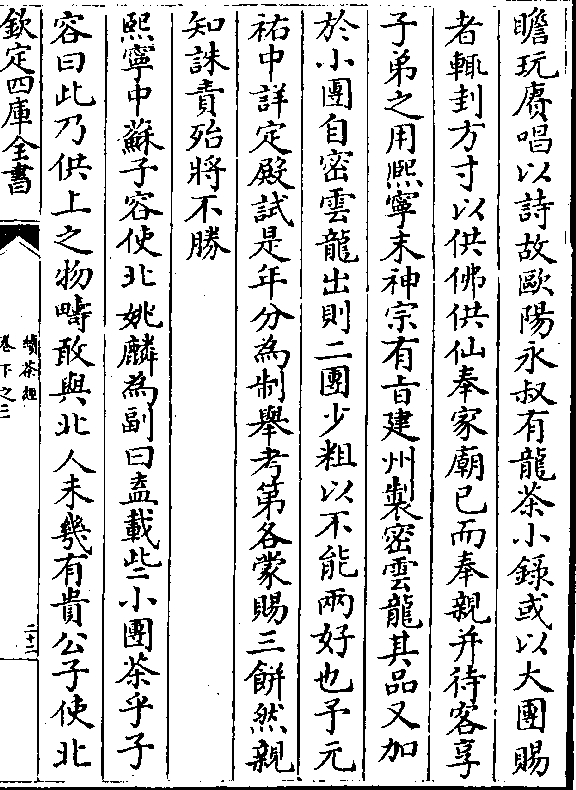 瞻玩賡唱以詩故歐陽永叔有龍茶小錄或以大團賜
者輙刲方寸以供佛供仙奉家廟已而奉親并待客享
子弟之用熈寧末神宗有旨建州製密雲龍其品又加
於小團自密雲龍出則二團少粗以不能兩好也予元
祐中詳定殿試是年分為制舉考第各蒙賜三餅然親
知誅責殆將不勝
熈寧中蘇子容使北姚麟為副曰盍載些小團茶乎子
容曰此乃供上之物疇敢與北人未幾有貴公子使北
欽定四庫全書
續茶經
卷下之三
二十二